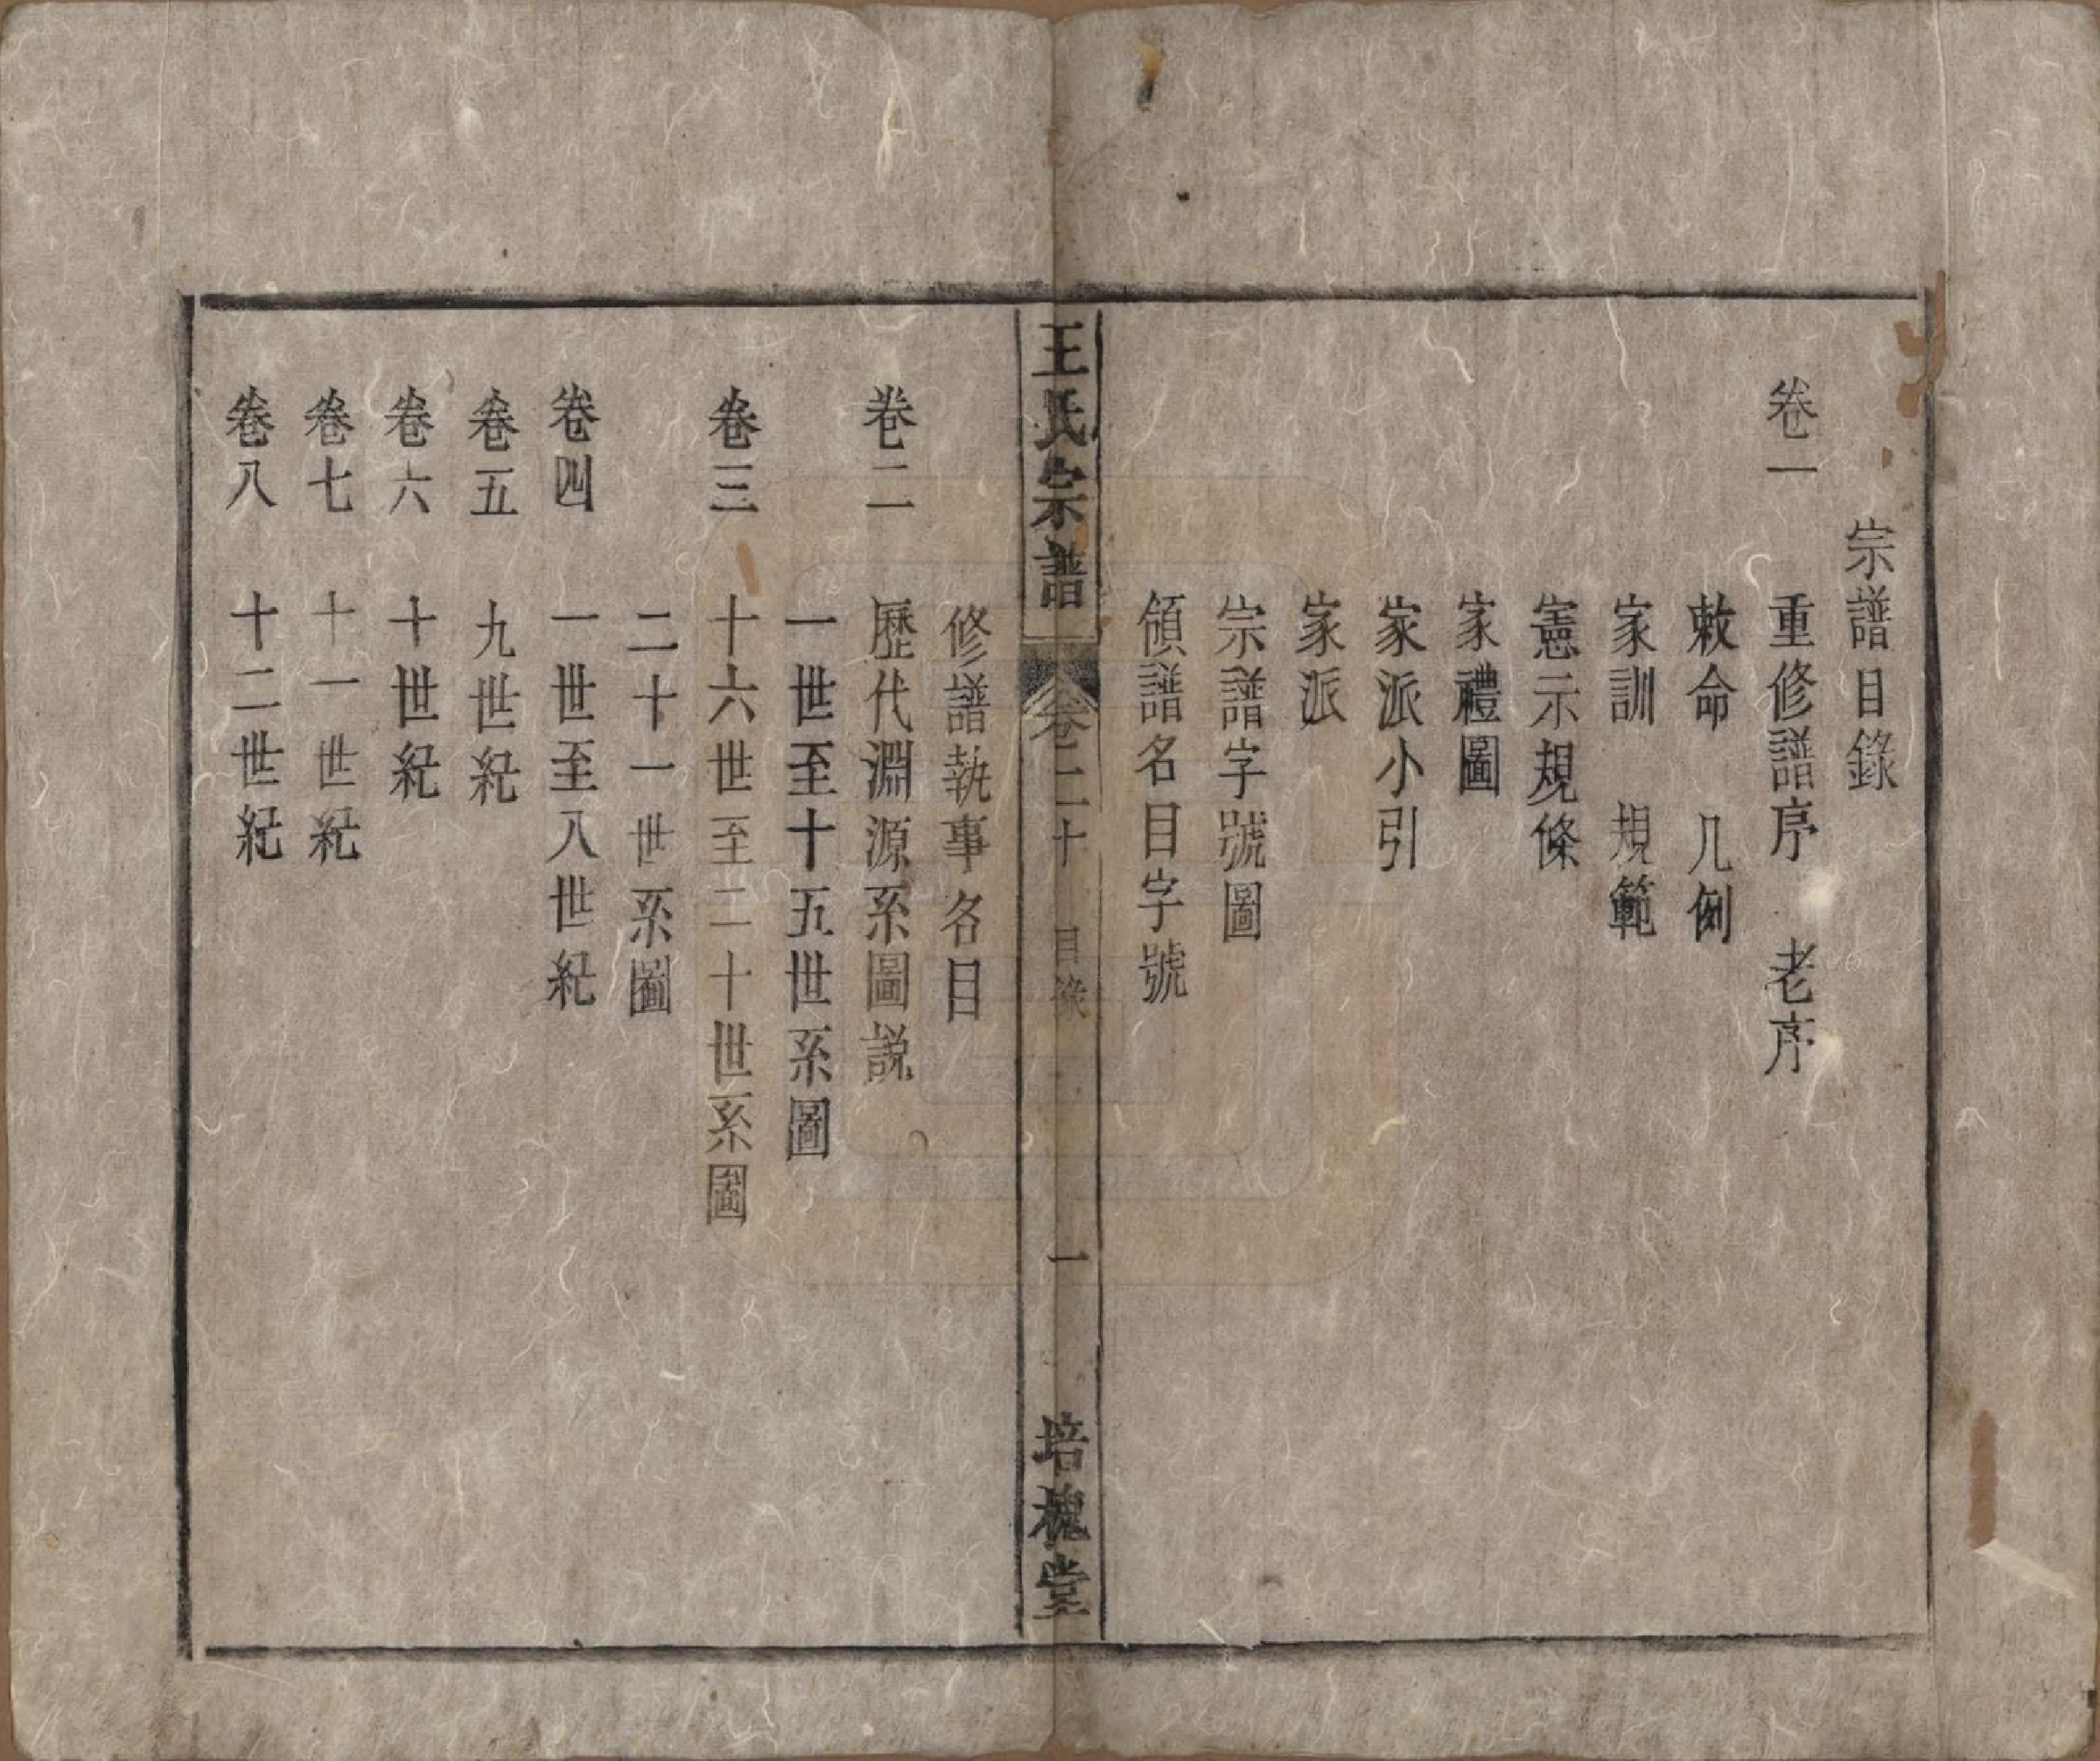 宗譜目錄
卷一 重修譜序 老序
敕命 凡例
家訓 規範
憲示規條
家禮圖
家派小引
家派
宗譜字號圖
領譜名目字號
王氏宗譜 卷二十 目錄 一 培槐堂
修譜執事名目
卷二 歷代淵源系圖説
一世至十五世系圖
卷三 十六世至二十世系圖
二十一世系圖
卷四 一世至八世紀
卷五 九世紀
卷六 十世紀
卷七 十一世紀
卷八 十二世紀